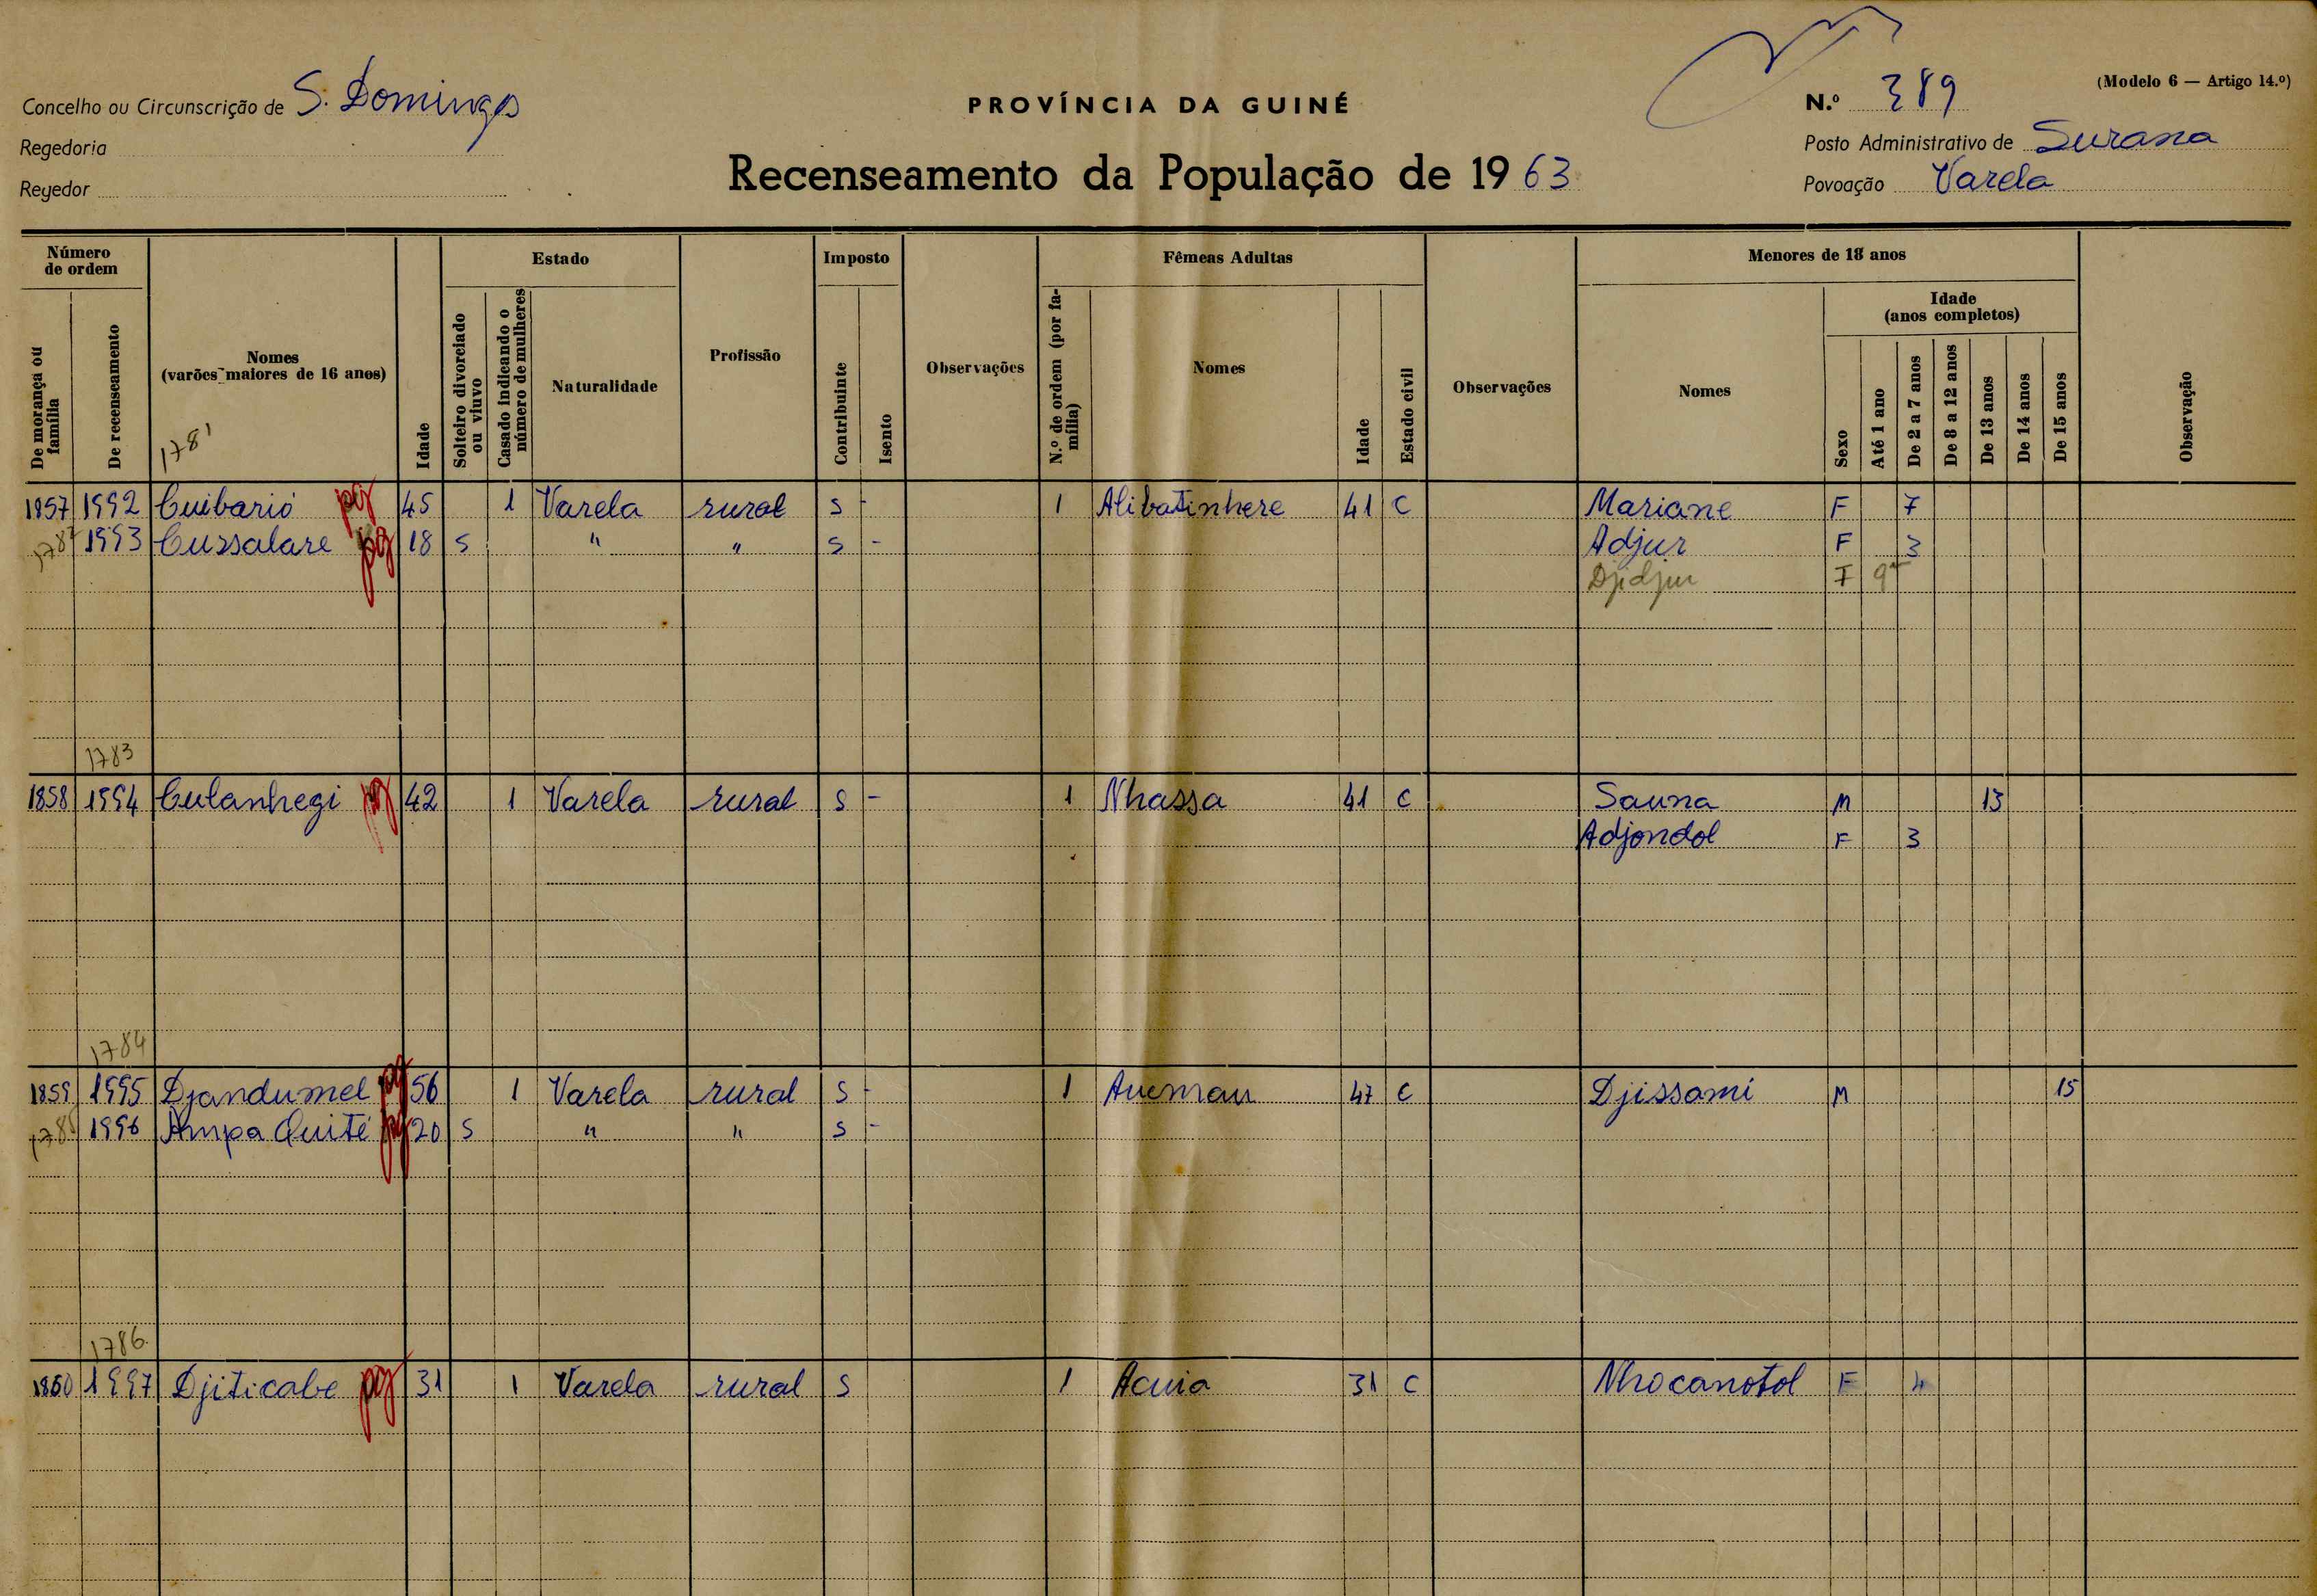 (Modelo 6 — Artigo 14.º)
Concelho ou Circunscrição de S. Domingos
PROVÍNCIA DA GUINÉ
N.º 389
Regedoria
Posto Administrativo de Surana
Regedor
Recenseamento da População de 1963
Povoação Varela
Número de ordem
De morança ou família
De recenseamento
Nomes
(varões maiores de 16 anos)
1781
Idade
Estado
Solteiro divorciado ou viuvo
Casado indicando o número de mulheres
Naturalidade
Profissão
Imposto
Contribuinte
Isento
Observações
Fêmeas Adultas
N.º de ordem (por família)
Nomes
Idade
Estado civil
Observações
Menores de 18 anos
Nomes
Sexo
Idade
(anos completos)
Até 1 ano
De 2 a 7 anos
De 8 a 12 anos
De 13 anos
De 14 anos
De 15 anos
Observação
1857 1992 Cuibarió pg 45 1 Varela rural S - 1 Alibatinhere 41 C Mariane F 7
1993 Cussalare pg 18 S " " S - Adjur F 3
Djidjur F
1783
1858 1994 Culanhegi pg 42 1 Varela rural S - 1 Nhassa 41 C Sauna M 13
Adjondol F 3
1784
1859 1995 Djandumel pg 56 1 Varela rural S - 1 Aueman 47 C Djissami M 15
1785 1996 Ampa Quité pg 20 S " " S -
1786
1860 1997 Djiticabe pg 31 1 Varela rural S 1 Acuia 31 C Nhocanotol F 4